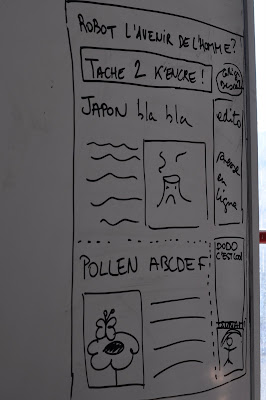 ROBOT L'AVENIR DE L'HOMME?
TACHE 2 K'ENCRE !
JAPON bla bla
edito
en
ligne
POLLEN ABCDEF
DODO
C'EST COOL